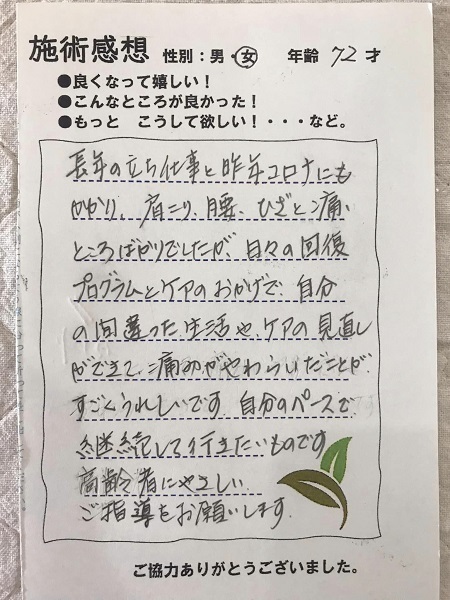 施術感想 性別：男・女 年齢 72 才
●良くなって嬉しい！
●こんなところが良かった！
●もっと こうして欲しい！・・・など。
長年の立ち仕事と昨年コロナにも
かかり、肩こり、腰、ひざと痛い
ところばかりでしたが、日々の回復
プログラムとケアのおかげで、自分
の間違った生活や、ケアの見直し
ができて、痛みがやわらいだことが、
すごくうれしいです。自分のペースで
継続して行きたいものです
高齢者にやさしい
ご指導をお願いします。
ご協力ありがとうございました。